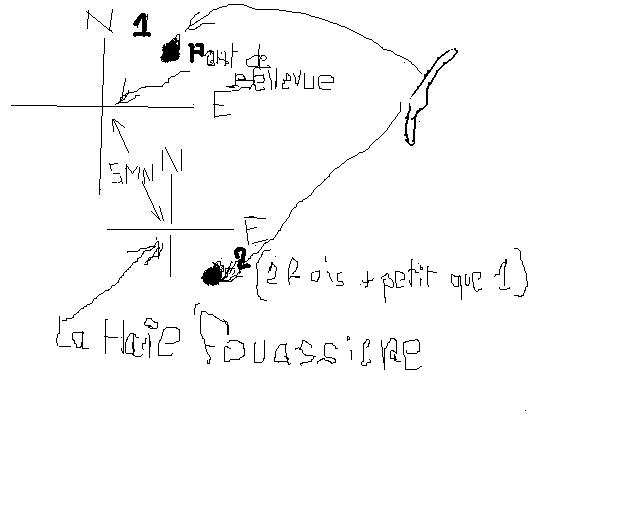 N
1
Pont de
Bellevue
E
5MN
N
E
2
(2 Fois + petit que 1)
La Haïe Fouassiere